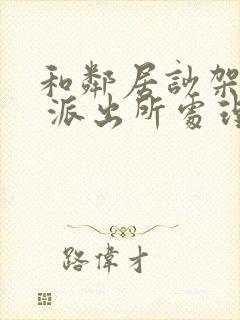 和鄰居訬架
派出所處理
路偉才